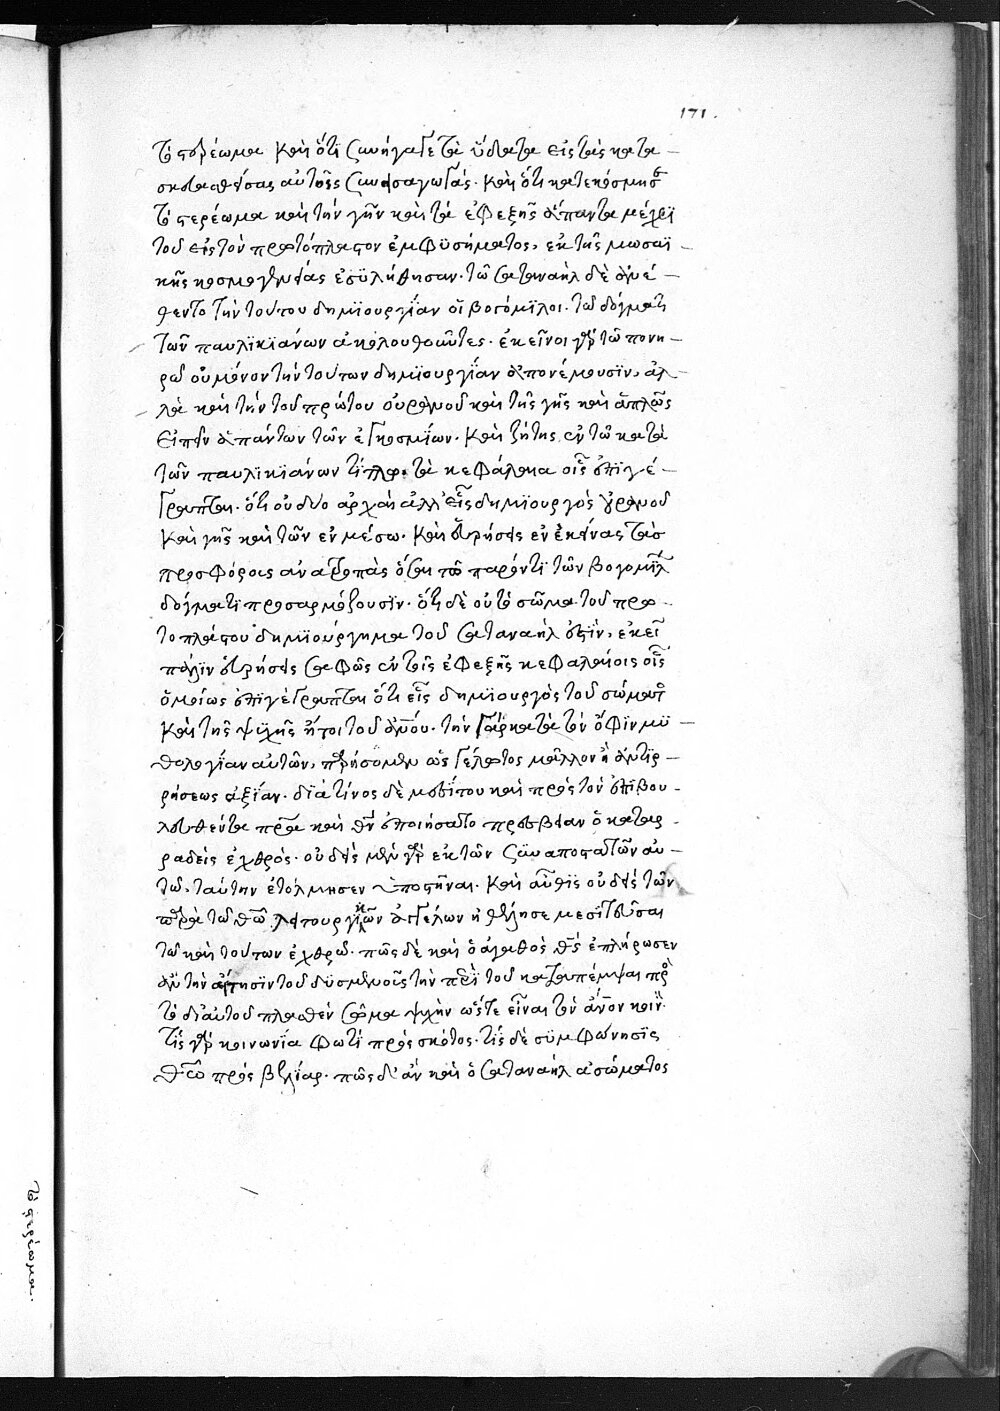 171.
τὸ στερέωμα καὶ ὅτι συνήγαγε τὰ ὕδατα εἰς τὰς κατα –
σκευασθείσας αὐτοῖς συναγωγάς. καὶ ὅτι κατεκόσμησε
τὸ στερέωμα καὶ τὴν γῆν καὶ τὰ ἐφεξῆς ἅπαντα μέχρϊ
τοῦ εἰς τὸν πρωτόπλαστον ἐμφϋσήματος, ἐκ τῆς μωσαϊ –
κῆς κοσμογενείας ἐσϋλήθησαν. τῶ σαταναὴλ δὲ ἀνέ –
θεντο τὴν τούτου δημϊουργΐαν οἱ βογόμϊλοι. τῶ δόγματι
τῶν παυλϊκϊάνων ἀκολουθοῦντες. ἐκεῖνοι γὰρ τῶ πονη –
ρῶ οὐ μόνον τὴν τούτων δημϊουργΐαν ἀπονέμουσϊν, ἀλ –
λὰ καὶ τὴν τοῦ πρώτου οὐρανοῦ καὶ τῆς γῆς καὶ ἁπλῶς
εἰπεῖν ἁπάντων τῶν ἐγκοσμΐων. καὶ ζήτει ἐν τῶ κατὰ
τῶν παυλϊκϊάνων τίτλω τὰ κεφάλαια οἷς ἐπϊγέ –
γραπται. ὅτι οὐ δύο ἀρχαὶ ἀλλ' εἷς δημϊουργὸς οὐρανοῦ
καὶ γῆς καὶ τῶν ἐν μέσω. καὶ εὑρήσεις ἐν ἐκείνοις τὰς
προσφόρους ἀνατροπὰς ὅσαι τῶ παρόντϊ τῶν βογομΐλων
δόγματϊ προσαρμόζουσϊν. ὅτι δὲ οὐ τὸ σῶμα τοῦ πρω –
τοπλάστου δημϊούργημα τοῦ σαταναήλ ἐστϊν, ἐκεῖ
πάλϊν εὑρήσεις σαφῶς ἐν τοῖς ἐφεξῆς κεφαλαίοις οἷς
ὁμοίως ἐπϊγέγραπται ὅτι εἷς δημϊουργὸς τοῦ σώματος
καὶ τῆς ψυχῆς ἤτοι τοῦ ἀνου. τὴν γὰρ κατὰ τὸν ὄφϊν μϋ –
θολογίαν αὐτῶν, παρήσομεν ὡς γέλωτος μᾶλλον ἢ ἀντϊρ –
ρήσεως ἀξΐαν. δϊὰ τίνος δὲ μεσΐτου καὶ πρὸς τὸν ἐπϊβου –
λευθέντα πρα καὶ θν ἐποιήσατο πρεσβείαν ὁ καταρ –
ραθεὶς ἐχθρός. οὐδεὶς μὲν γὰρ ἐκ τῶν σϋναποστατῶν αὐ –
τῶ ταύτην ἐτόλμησεν ὑποστῆναι. καὶ αὖθϊς οὐδεὶς τῶν
παρὰ τῶ θω λειτουργικῶν ἀγγέλων ἠθέλησε μεσϊτεῦσαι
τῶ καὶ τούτων ἐχθρῶ. πῶς δὲ καὶ ὁ ἀγαθὸς θς ἐπλήρωσεν
ἂν τὴν αἴτησϊν τοῦ δϋσμενοῦς τὴν περὶ τοῦ καταπέμψαι πρὸς
τὸ δι' αὐτοῦ πλασθὲν σῶμα ψυχὴν ὥστε εἶναι τὸν ἀνον κοινόν.
τίς γὰρ κοινωνία φωτὶ πρὸς σκότος. τίς δὲ σϋμφώνησϊς
θεῶ πρὸς βελίαρ. πῶς δ' ἂν καὶ ὁ σαταναὴλ ἀσώματος
τὸ στερέωμα.